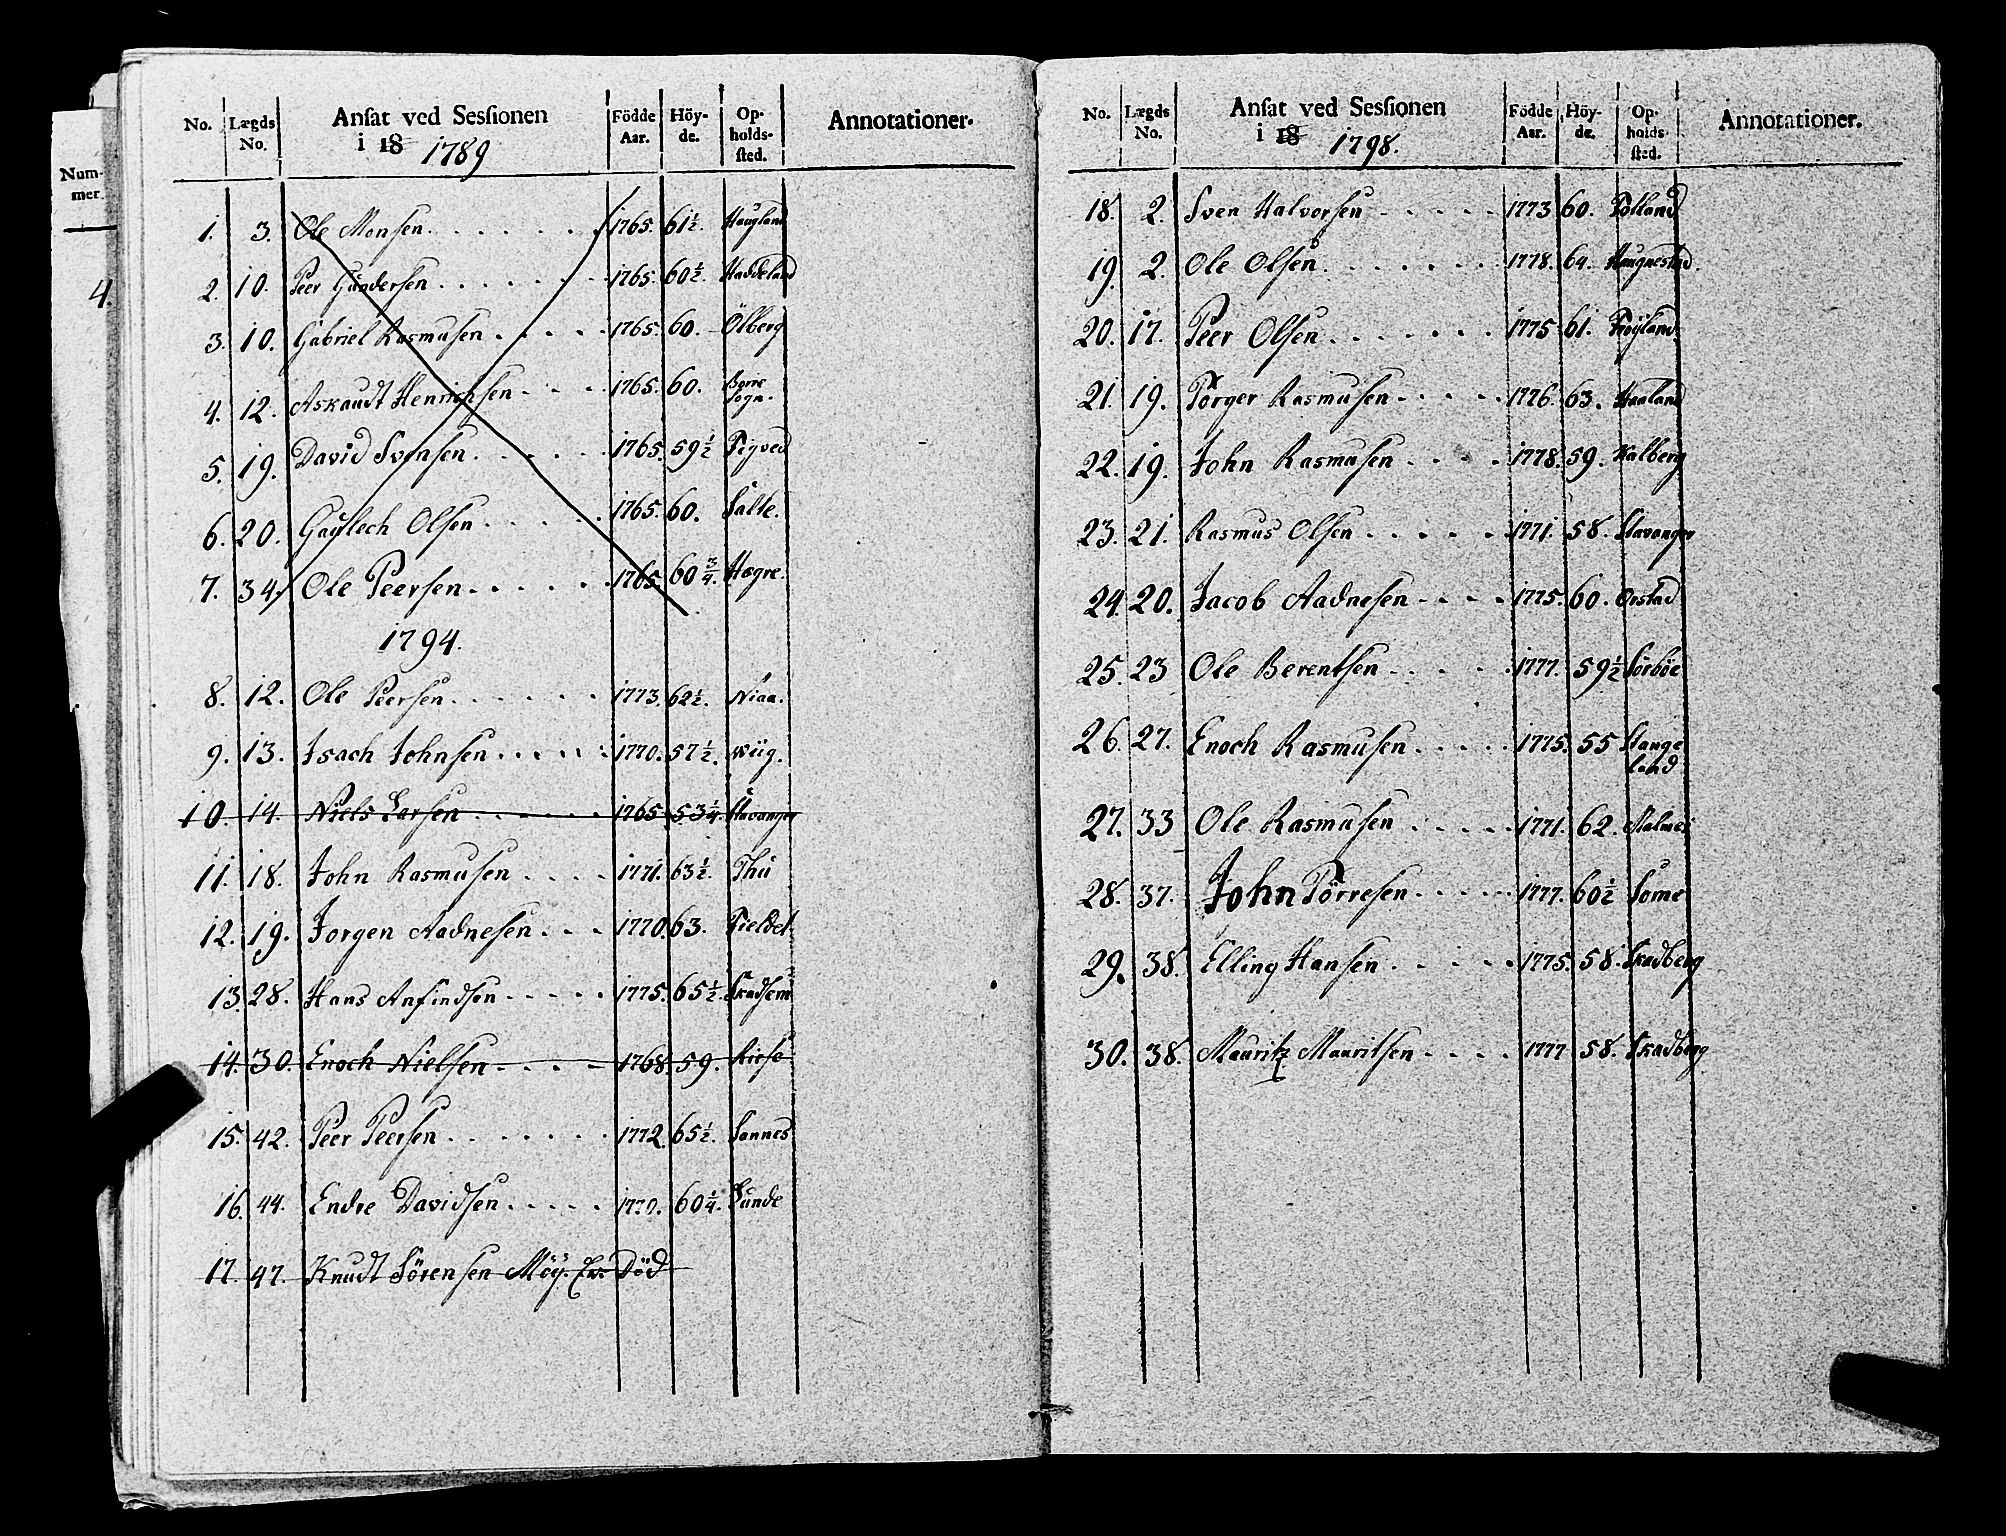 Nummer.
4.
No. Lægds No. Ansat ved Sessionen i 18 1789 Födde Aar. Höyde. Opholdssted. Annotationer.
1. 3. Ole Monsen 1765. 61½. Haugland
2. 10. Peer Gundersen 1765. 60½. Haddeland
3. 10. Gabriel Rasmusen 1765. 60. Ölberg
4. 12. Askaudt Henrichsen 1765. 60. Borre Sogn.
5. 19. David Svensen 1765. 59½ Tigved
6. 20. Gautlech Olsen 1765. 60. Salte.
7. 34. Ole Peersen 1765. 60¾. Hægre.
1794.
8. 12. Ole Peersen 1773. 62½. Niaa.
9. 13. Isach Johnsen 1770. 57½. Wiig.
10. 14. Niels Larsen 1765. 53¼. Stavanger
11. 18. John Rasmusen 1771. 63½. Thu
12. 19. Jorgen Aadnesen 1770. 63. Fieldet.
13. 28. Hans Anfindsen 1775. 65½. Skadsem
14. 30. Enoch Nielsen 1768. 59. Riese
15. 42. Peer Peersen 1772. 65½. Sannes
16. 44. Endre Davidsen 1770. 60¼. Sunde
17. 47. Knudt Sörensen Möy. Er Död
No. Lægds No. Ansat ved Sessionen i 18 1798. Födde Aar. Höyde. Opholdssted. Annotationer.
18. 2. Sven Halvorsen 1773 60. Polland
19. 2. Ole Olsen 1778. 64. Haugnestad.
20. 17. Peer Olsen 1775 61. Fröyland.
21. 19. Torger Rasmusen 1776. 63. Haaland
22. 19. John Rasmusen 1778. 59. Kalberg
23. 21. Rasmus Olsen 1771. 58. Stavanger
24. 20. Jacob Aadnesen 1775. 60. Orstad
25. 23 Ole Berentsen 1777. 59½ Sörböe
26. 27. Enoch Rasmusen 1775. 55 Stangeland
27. 33 Ole Rasmusen 1771. 62. Malmei
28. 37. John Törresen 1777. 60½ Some
29. 38. Elling Hansen 1775. 58. Skadberg
30. 38. Mauritz Mauritsen 1777 58. Skadberg